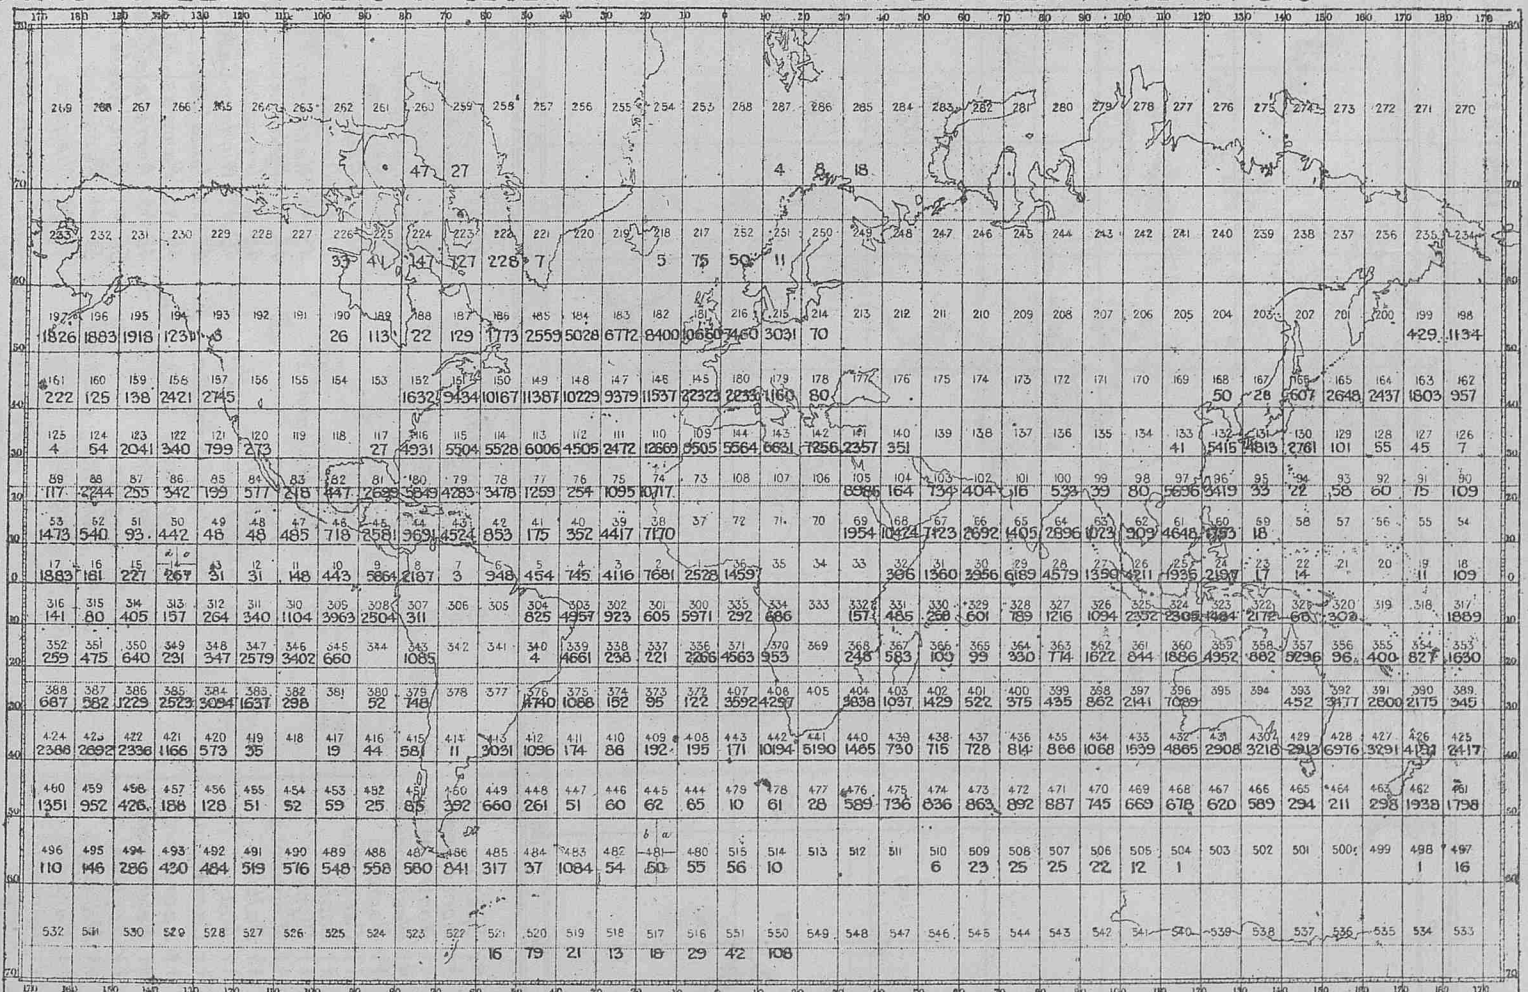 170 160 150 140 130 120 110 100 90 80 70 60 50 40 30 20 10 0 10 20 30 40 50 60 70 80 90 100 110 120 130 140 150 160 170 180 170
269 268 267 266 265 264 263 262 261 260 259 258 257 256 255 254 253 288 287 286 285 284 283 282 281 280 279 278 277 276 275 274 273 272 271 270
47 27 4 8 18
70 70
233 232 231 230 229 228 227 226 225 224 223 222 221 220 219 218 217 252 251 250 249 248 247 246 245 244 243 242 241 240 239 238 237 236 235 234
33 41 147 727 228 7 5 75 50 11
60 60
197 196 195 194 193 192 191 190 189 188 187 186 185 184 183 182 181 216 215 214 213 212 211 210 209 208 207 206 205 204 203 202 201 200 199 198
1826 1883 1918 1231 8 26 113 22 129 1773 2559 5028 6772 8400 10660 7460 3031 70 429 1134
50 50
161 160 159 158 157 156 155 154 153 152 151 150 149 148 147 146 145 180 179 178 177 176 175 174 173 172 171 170 169 168 167 166 165 164 163 162
222 125 138 2421 2745 1632 9434 10167 11387 10229 9379 11537 22323 2233 1160 80 50 28 5607 2648 2437 1803 957
40 40
125 124 123 122 121 120 119 118 117 116 115 114 113 112 111 110 109 144 143 142 141 140 139 138 137 136 135 134 133 132 131 130 129 128 127 126
4 54 2041 340 799 273 27 4931 5504 5528 6006 4505 2472 12669 9505 5564 6631 7256 2357 351 41 5415 4813 2761 101 55 45 7
30 30
89 88 87 86 85 84 83 82 81 80 79 78 77 76 75 74 73 108 107 106 105 104 103 102 101 100 99 98 97 96 95 94 93 92 91 90
117 2244 255 342 199 577 218 447 2699 5849 4283 3478 1259 254 1095 10717 8986 164 734 404 16 533 39 80 5696 3419 33 22 58 60 75 109
53 52 51 50 49 48 47 46 45 44 43 42 41 40 39 38 37 72 71 70 69 68 67 66 65 64 63 62 61 60 59 58 57 56 55 54
1473 540 93 442 48 48 485 718 2581 9691 4524 853 175 352 4417 7170 1954 10424 7123 2692 1405 2896 1023 909 4648 1753 18
17 16 15 14 13 12 11 10 9 8 7 6 5 4 3 2 1 36 35 34 33 32 31 30 29 28 27 26 25 24 23 22 21 20 19 18
1883 181 227 267 31 31 148 443 5864 2187 3 948 454 745 4116 7681 2528 1459 396 1360 3956 6189 4579 1350 4211 1936 2197 17 14 11 109
0 0
316 315 314 313 312 311 310 309 308 307 306 305 304 303 302 301 300 335 334 333 332 331 330 329 328 327 326 325 324 323 322 321 320 319 318 317
141 80 405 157 264 340 1104 3963 2504 311 825 4957 923 605 5971 292 686 157 485 258 601 789 1216 1094 2352 2305 1484 2172 66 302 1889
10 10
352 351 350 349 348 347 346 345 344 343 342 341 340 339 338 337 336 371 370 369 368 367 366 365 364 363 362 361 360 359 358 357 356 355 354 353
259 475 640 231 347 2579 3402 660 1085 4 4661 238 221 2266 4563 953 248 583 109 99 330 774 1622 844 1886 4952 882 5296 96 400 827 1630
20 20
388 387 386 385 384 383 382 381 380 379 378 377 376 375 374 373 372 407 406 405 404 403 402 401 400 399 398 397 396 395 394 393 392 391 390 389
687 582 1229 2523 3094 1637 298 52 748 4740 1088 152 95 122 3592 4297 9838 1037 1429 522 375 435 862 2141 7089 452 3477 2800 2175 345
30 30
424 423 422 421 420 419 418 417 416 415 414 413 412 411 410 409 408 443 442 441 440 439 438 437 436 435 434 433 432 431 430 429 428 427 426 425
2388 2892 2336 1166 573 35 19 44 581 11 3031 1096 174 86 192 195 171 10194 5190 1485 730 715 728 814 866 1068 1639 4865 2908 3218 2913 6976 3291 4192 2417
40 40
460 459 458 457 456 455 454 453 452 451 450 449 448 447 446 445 444 479 478 477 476 475 474 473 472 471 470 469 468 467 466 465 464 463 462 461
1351 952 426 188 128 51 52 59 25 85 392 660 261 51 60 62 65 10 61 28 589 736 836 863 892 887 745 669 678 620 589 294 211 298 1938 1798
50 50
b a
496 495 494 493 492 491 490 489 488 487 486 485 484 483 482 481 480 515 514 513 512 511 510 509 508 507 506 505 504 503 502 501 500 499 498 497
110 146 286 430 484 519 576 548 558 560 841 317 37 1084 54 50 55 56 10 6 23 25 25 22 12 1 1 16
60 60
532 531 530 529 528 527 526 525 524 523 522 521 520 519 518 517 516 551 550 549 548 547 546 545 544 543 542 541 540 539 538 537 536 535 534 533
16 79 21 13 18 29 42 108
70 70